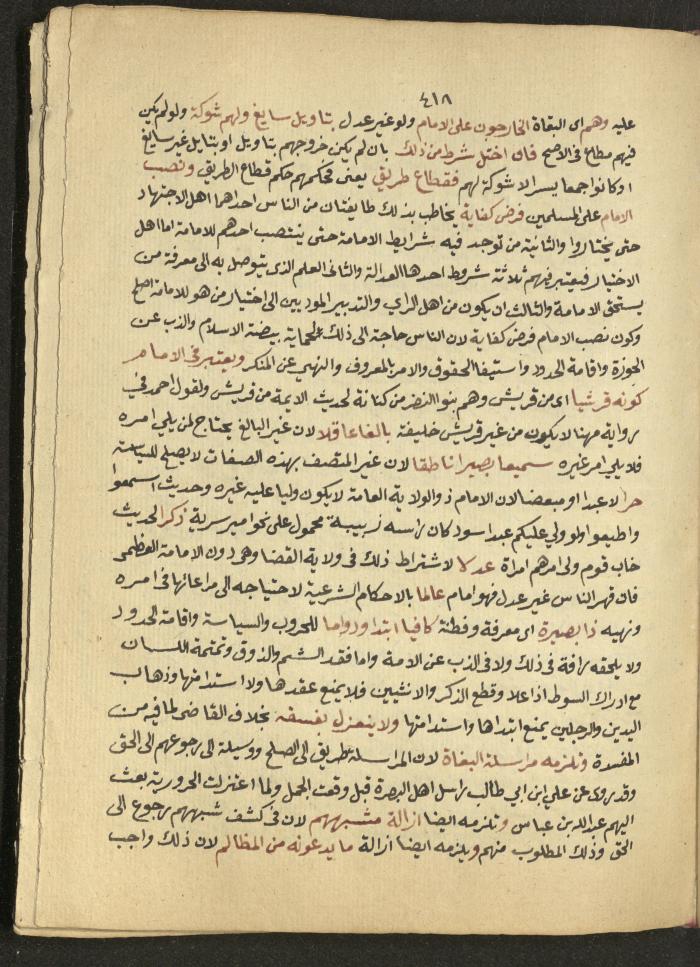 ٤١٨
عليه وهم اي البغاة الخارجون على الامام ولو غير عدل بتاويل سايغ ولهم شوكة ولو لم يكن
فيهم مطاع في الاصح فان اختل شرط من ذلك بان لم يكن خروجهم بتاويل او بتاويل غير سايغ
او كانوا جمعا يسيرا لا شوكة لهم فقطاع طريق يعني فحكمهم حكم قطاع الطريق ونصب
الامام على المسلمين فرض كفاية يخاطب بذلك طايفتان من الناس احداهما اهل الاجتهاد
حتى يختاروا والثانية من توجد فيه شرايط الامامة حتى ينتصب احدهم للامامة اما اهل
الاختيار فيعتبر فيهم ثلاثة شروط احدها العدالة والثاني العلم الذي يتوصل به الى معرفة من
يستحق الامامة والثالث ان يكون من اهل الراي والتدبير الموديين الى اختيار من هو للامامة اصلح
وكون نصب الامام فرض كفاية لان الناس حاجة الى ذلك لحماية بيضة الاسلام والذب عن
الحوزة واقامة الحدود واستيفا الحقوق والامر بالمعروف والنهي عن المنكر ويعتبر في الامام
كونه قرشيا اي من قريش وهم بنو النضر من كنانة لحديث الايمة من قريش ولقول احمد في
رواية مهنا لا يكون من غير قريش خليفة بالغا عاقلا لان غير البالغ يحتاج لمن يلي امره
فلا يلي امر غيره سميعا بصيرا ناطقا لان غير المتصف بهذه الصفات لا يصلح للسياسة
حرا لا عبدا او مبعضا لان الامام ذو الولاية العامة لا يكون وليا عليه غيره وحديث اسمعوا
واطيعوا ولو ولي عليكم عبد اسود كان راسه زبيبة محمول على نحو امير سرية ذكرا لحديث
خاب قوم ولى امرهم امراة عدلا لاشتراط ذلك في ولاية القضا وهي دون الامامة العظمى
فان قهر الناس غير عدل فهو امام عالما بالاحكام الشرعية لاحتياجه الى مراعاتها في امره
ونهيه ذا بصيرة اي معرفة وفطنة كافيا ابتدا ودواما للحروب والسياسة واقامة الحدود
ولا يلحقه رافة في ذلك ولا في الذب عن الامة واما فقد الشم والذوق وتمتمة اللسان
مع ادراك السوط اذا علا وقطع الذكر والانثيين فلا يمنع عقدها ولا استدامتها وذهاب
اليدين والرجلين يمنع ابتداها واستدامتها ولا ينعزل بفسقه بخلاف القاضي لما فيه من
المفسدة وتلزمه مراسلة البغاة لان المراسلة طريق الى الصلح ووسيلة الى رجوعهم الى الحق
وقد روي عن علي ابن ابي طالب راسل اهل البصرة قبل وقعت الجمل ولما اعتزلت الحرورية بعث
اليهم عبد الله بن عباس وتلزمه ايضا ازالة شبههم لان في كشف شبههم رجوع الى
الحق وذلك المطلوب منهم ويلزمه ايضا ازالة ما يدعونه من المظالم لان ذلك واجب